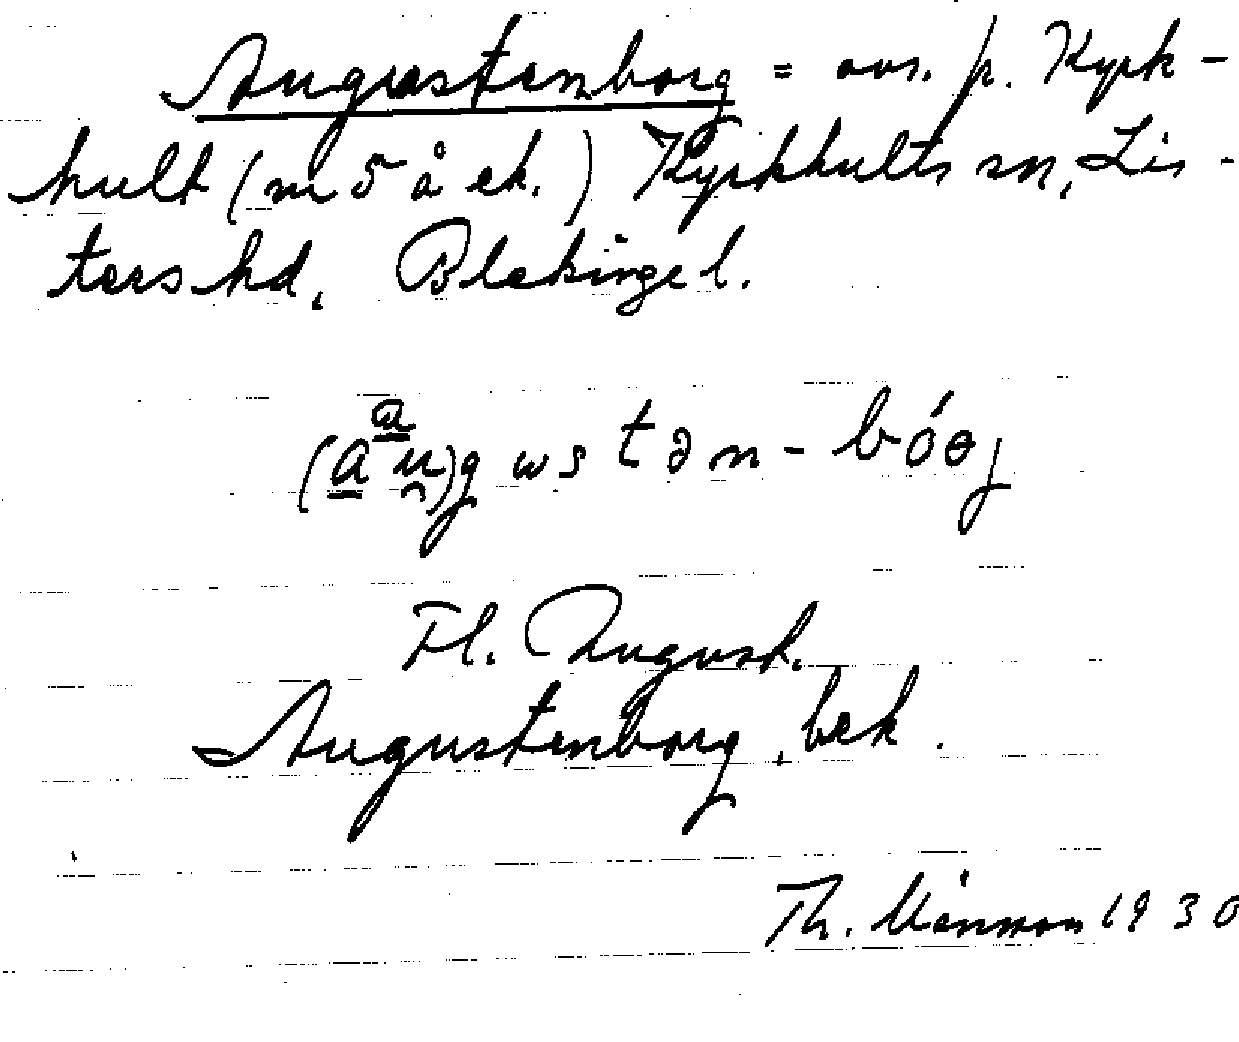 Augustenborg = avs. p. Kyrk-
hult (m 5 å ek.) Kyrkhults sn, Lis-
ters hd, Blekinge l.
(a͟u̯)gωstən-bóɵj
a͟
Fl. August.
Augustenborg, bek.
Th. 1930